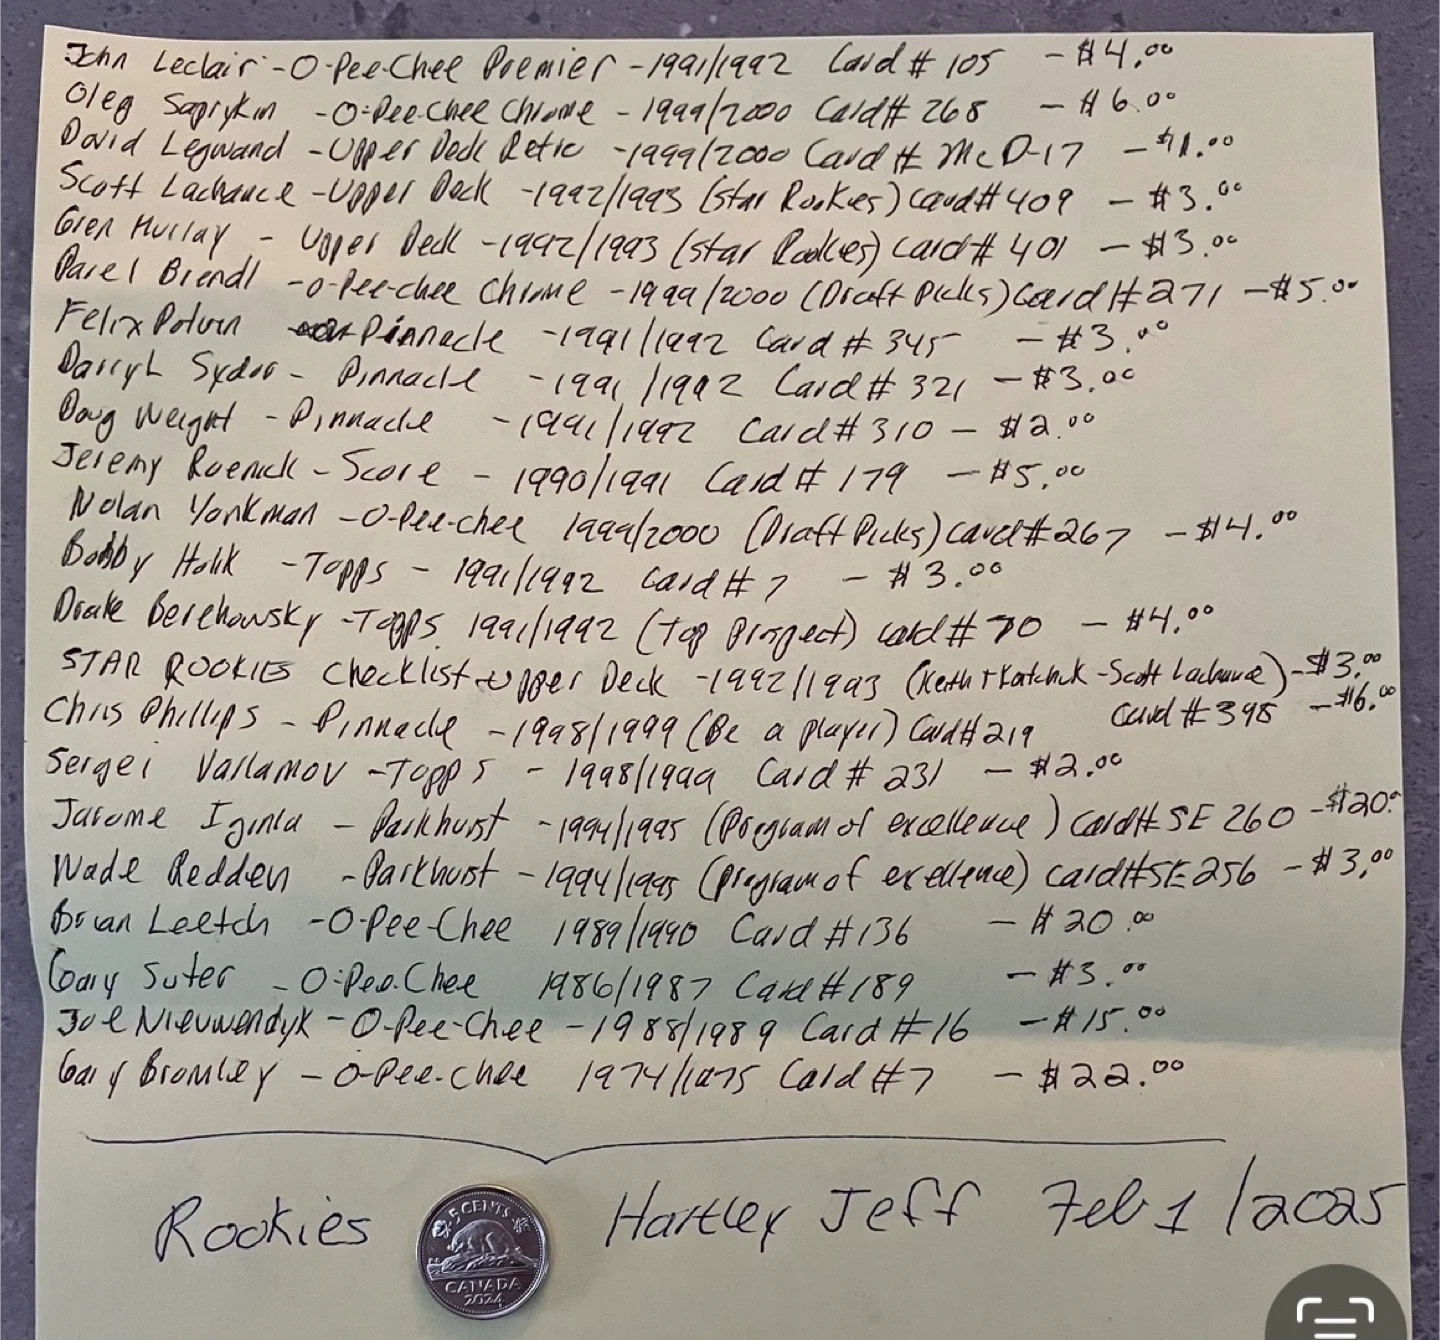 John Leclair - O-Pee-Chee Premier - 1991/1992 Card # 105 - $4.00
Oleg Saprykin - O-Pee-Chee Chrome - 1999/2000 Card# 268 - $6.00
David Legwand - Upper Deck Retro - 1999/2000 Card # McD-17 - $1.00
Scott Lachance - Upper Deck - 1992/1993 (Star Rookies) card# 409 - $3.00
Glen Murray - Upper Deck - 1992/1993 (star Rookies) card# 401 - $3.00
Pavel Brendl - O-Pee-chee Chrome - 1999/2000 (Draft Picks) Card # 271 - $5.00
Felix Potvin Pinnacle - 1991/1992 Card # 345 - $3.00
Darryl Sydor - Pinnacle - 1991/1992 Card # 321 - $3.00
Doug Weight - Pinnacle - 1991/1992 Card# 310 - $2.00
Jeremy Roenick - Score - 1990/1991 Card # 179 - $5.00
Nolan Yonkman - O-Pee-chee 1999/2000 (Draft Picks) card# 267 - $4.00
Bobby Holik - Topps - 1991/1992 Card # 7 - $3.00
Drake Berehowsky - Topps 1991/1992 (Top Prospect) card # 70 - $4.00
STAR ROOKIES Checklist - Upper Deck - 1992/1993 (Keith Tkatchuk - Scott Lachance) - $3.00
card # 398
Chris Phillips - Pinnacle - 1998/1999 (Be a player) Card# 219 - $6.00
Sergei Varlamov - Topps - 1998/1999 Card # 231 - $2.00
Jarome Iginla - Parkhurst - 1994/1995 (Program of excellence) card# SE 260 - $20.00
Wade Redden - Parkhurst - 1994/1995 (program of exellence) card# SE 256 - $3.00
Brian Leetch - O-Pee-Chee 1989/1990 Card # 136 - $20.00
Gary Suter - O-Pee-Chee 1986/1987 Card # 189 - $3.00
Joe Nieuwendyk - O-Pee-Chee - 1988/1989 Card # 16 - $15.00
Gary Bromley - O-Pee-Chee 1974/1975 Card #7 - $22.00
Rookies Hartley Jeff Feb 1/2025
5 CENTS
CANADA
2024